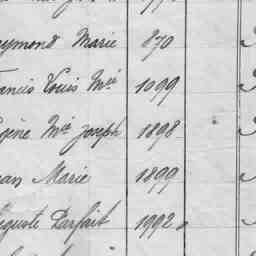 aymond Marie 870
rancis Louis Mie 1099
ugène Mie Joseph 1898
ean Marie 1899
uguste Parfait 1992